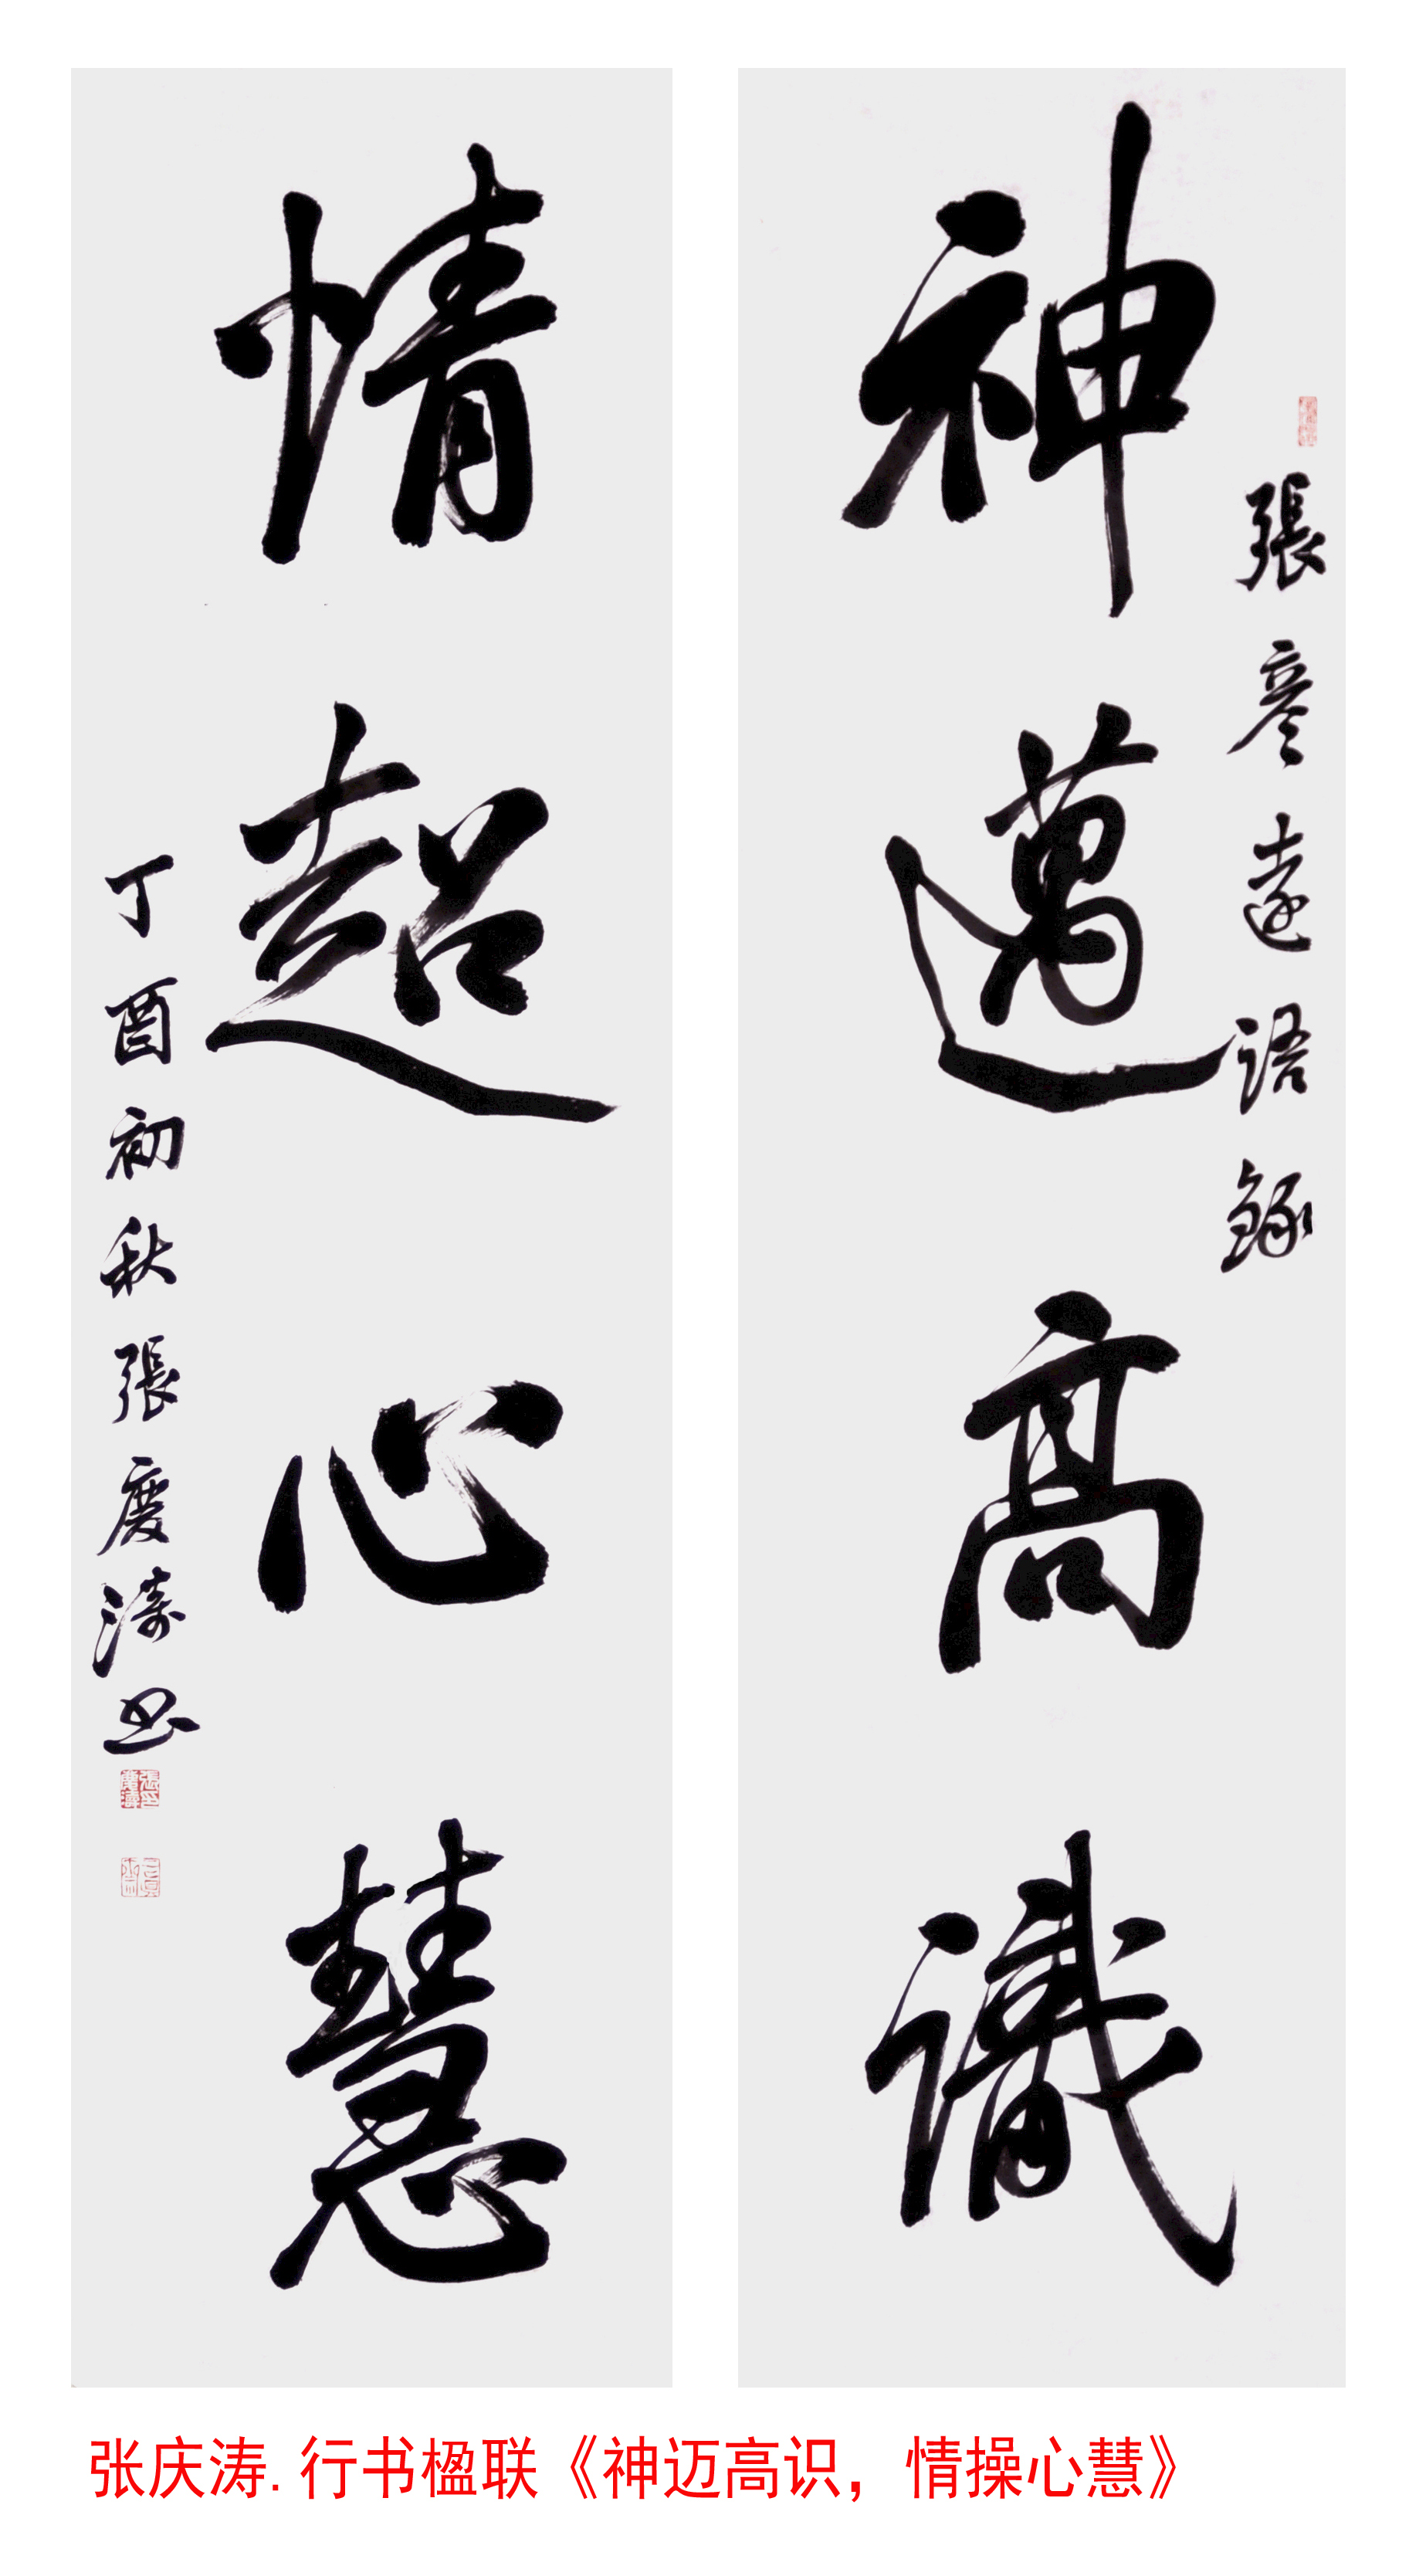 神邁高識
張彦遠語録
情超心慧
丁酉初秋張慶濤书
張慶濤印
张庆涛.行书楹联《神迈高识，情操心慧》